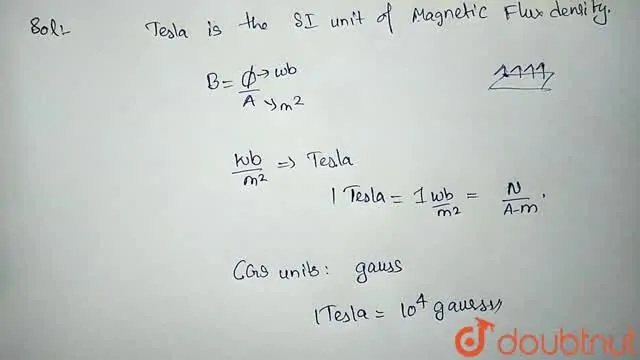 Sol:- Tesla is the SI unit of Magnetic Flux density.
B = ϕ → wb
A ↘ m²
wb/m² ⇒ Tesla
1 Tesla = 1 wb/m² = N/A-m.
CGS units: gauss
1 Tesla = 10⁴ gauss
doubtnut